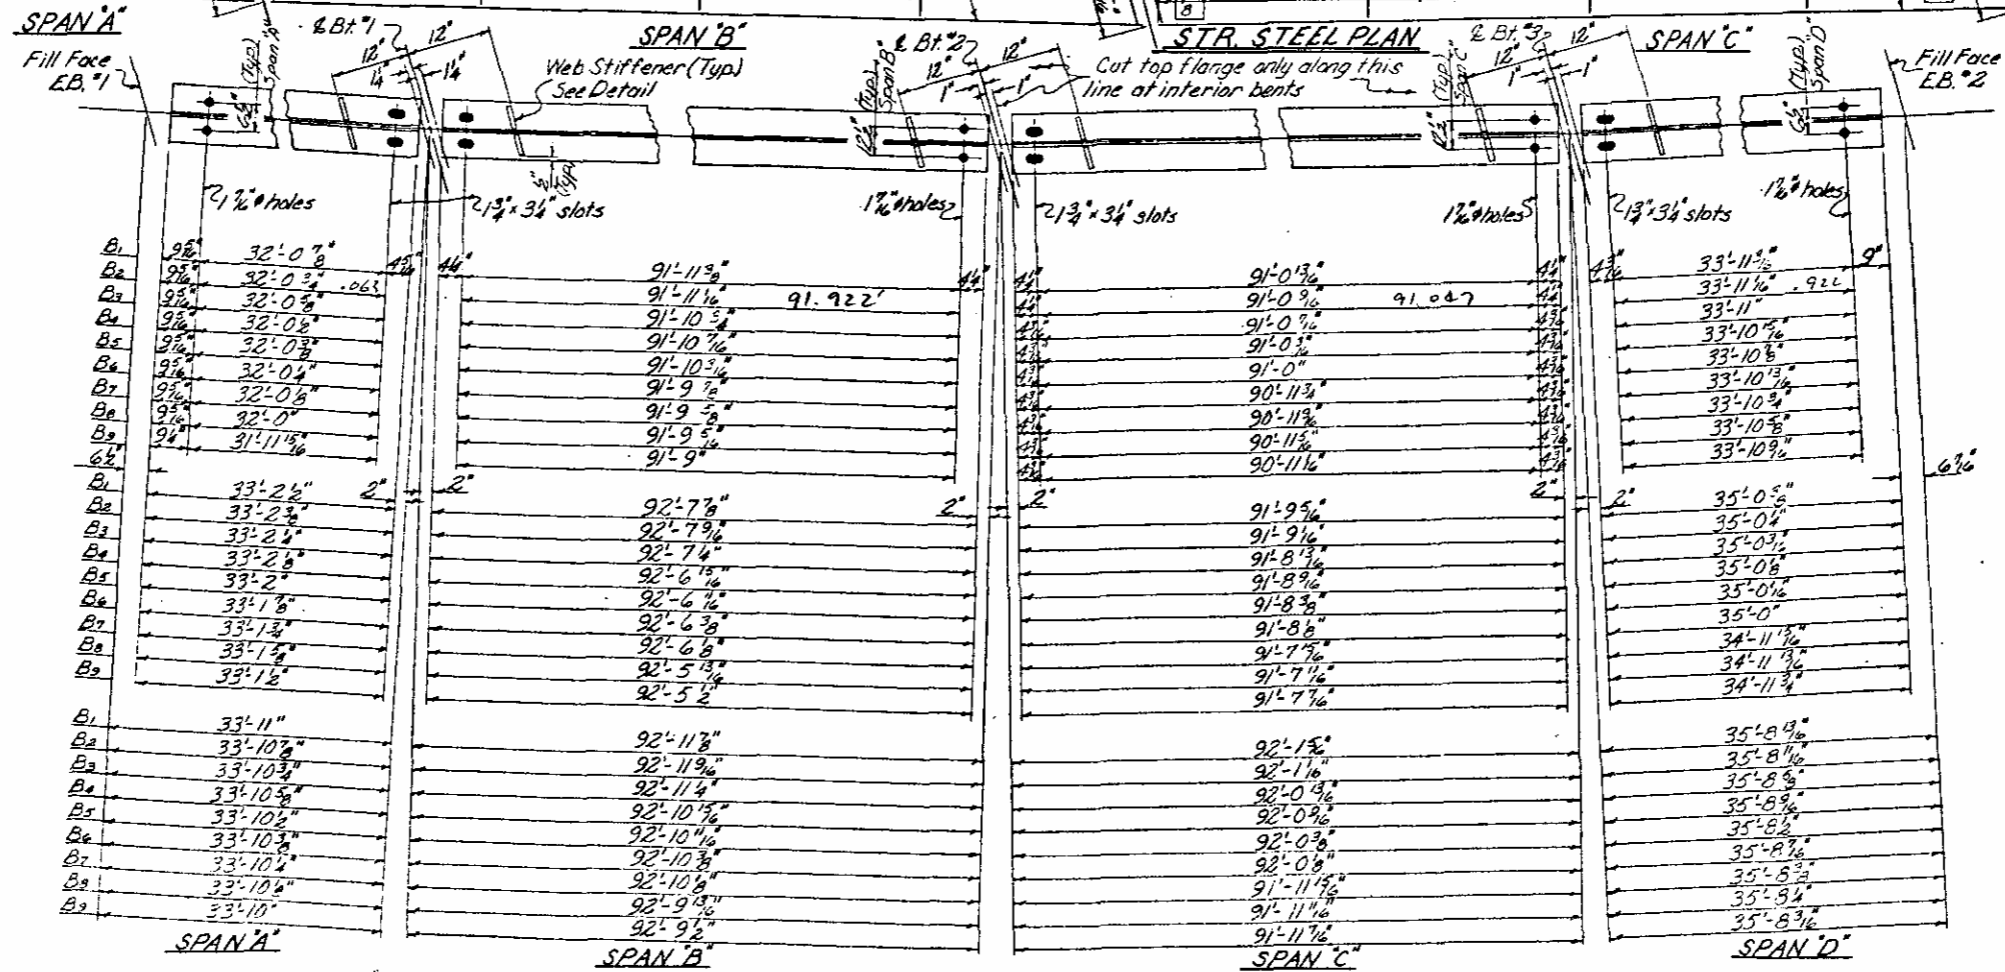 SPAN "A"
℄ Bt. #1
SPAN "B"
℄ Bt. #2
STR. STEEL PLAN
℄ Bt. #3
SPAN "C"
Fill Face
E.B. #1
(Typ.)
Span "A"
12" 12"
1¼" 1¼"
Web Stiffener (Typ.)
See Detail
(Typ.)
Span "B"
12" 12"
1" 1"
Cut top flange only along this
line at interior bents
(Typ.)
Span "C"
12" 12"
1" 1"
(Typ.)
Span "D"
Fill Face
E.B. #2
½"
(Typ.)
1 7/16" ø holes
1¾" x 3¼" slots
1 7/16" ø holes
1¾" x 3¼" slots
1 7/16" ø holes
1¾" x 3¼" slots
1 7/16" ø holes
B1 9 5/16" 32'-0 7/8" 4 5/16" 4¼" 91'-11 3/8" 4¼" 4¼" 91'-0 13/16" 4¼" 4 3/16" 33'-11 3/16" 9"
B2 9 5/16" 32'-0 3/4" .063 91'-11 1/16" 91.922' 4¼" 91'-0 9/16" 91.047 4¼" 33'-11 1/16" .922
B3 9 5/16" 32'-0 5/8" 91'-10 3/4" 4 3/16" 91'-0 7/16" 4 3/16" 33'-11"
B4 9 5/16" 32'-0 1/2" 91'-10 7/16" 4 3/16" 91'-0 3/16" 4 3/16" 33'-10 15/16"
B5 9 5/16" 32'-0 3/8" 91'-10 3/16" 4 3/16" 91'-0" 4 3/16" 33'-10 7/8"
B6 9 5/16" 32'-0 1/4" 91'-9 7/8" 4 3/16" 90'-11 3/4" 4 3/16" 33'-10 13/16"
B7 9 5/16" 32'-0 1/8" 91'-9 5/8" 4 3/16" 90'-11 9/16" 4 3/16" 33'-10 3/4"
B8 9 5/16" 32'-0" 91'-9 5/16" 4 3/16" 90'-11 5/16" 4 3/16" 33'-10 5/8"
B9 9 1/4" 31'-11 15/16" 91'-9" 4 3/16" 90'-11 1/16" 4 3/16" 33'-10 9/16"
6 1/2" 6 7/16"
B1 33'-2 1/2" 2" 2" 92'-7 7/8" 2" 2" 91'-9 5/16" 2" 2" 35'-0 5/8"
B2 33'-2 3/8" 92'-7 9/16" 91'-9 1/16" 35'-0 1/4"
B3 33'-2 1/4" 92'-7 1/4" 91'-8 13/16" 35'-0 3/16"
B4 33'-2 1/8" 92'-6 15/16" 91'-8 9/16" 35'-0 1/8"
B5 33'-2" 92'-6 11/16" 91'-8 3/8" 35'-0 1/16"
B6 33'-1 7/8" 92'-6 3/8" 91'-8 1/8" 35'-0"
B7 33'-1 3/4" 92'-6 1/8" 91'-7 15/16" 34'-11 15/16"
B8 33'-1 5/8" 92'-5 13/16" 91'-7 11/16" 34'-11 13/16"
B9 33'-1 1/2" 92'-5 1/2" 91'-7 7/16" 34'-11 3/4"
B1 33'-11" 92'-11 7/8" 92'-1 5/16" 35'-8 13/16"
B2 33'-10 7/8" 92'-11 9/16" 92'-1 1/16" 35'-8 11/16"
B3 33'-10 3/4" 92'-11 1/4" 92'-0 13/16" 35'-8 5/8"
B4 33'-10 5/8" 92'-10 15/16" 92'-0 9/16" 35'-8 9/16"
B5 33'-10 1/2" 92'-10 11/16" 92'-0 3/8" 35'-8 1/2"
B6 33'-10 3/8" 92'-10 3/8" 92'-0 1/8" 35'-8 7/16"
B7 33'-10 1/4" 92'-10 1/8" 91'-11 15/16" 35'-8 3/8"
B8 33'-10 1/8" 92'-9 13/16" 91'-11 11/16" 35'-8 1/4"
B9 33'-10" 92'-9 1/2" 91'-11 7/16" 35'-8 3/16"
SPAN "A"
SPAN "B"
SPAN "C"
SPAN "D"